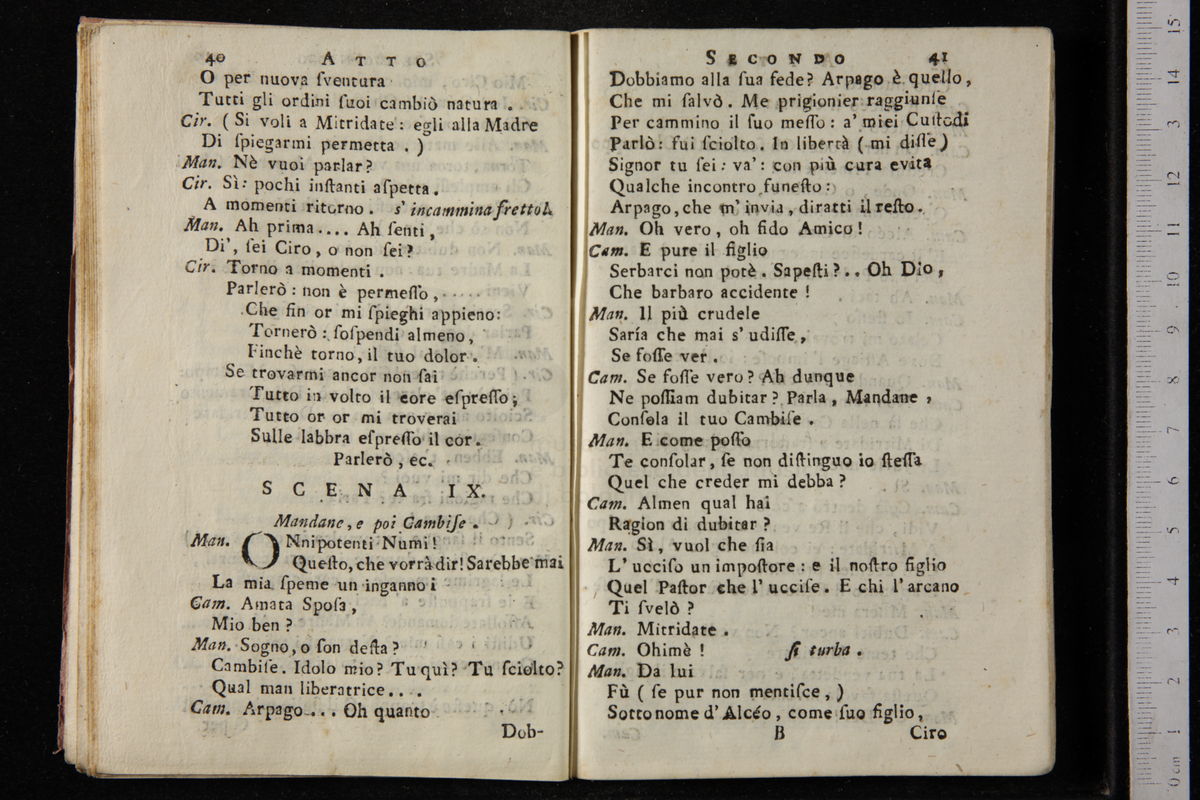 40 ATTO
O per nuova ſventura
Tutti gli ordini ſuoi cambiò natura .
Cir. ( Si voli a Mitridate : egli alla Madre
Di ſpiegarmi permetta . )
Man. Nè vuoi parlar?
Cir. Sì: pochi inſtanti aſpetta.
A momenti ritorno . s' incammina frettol.
Man. Ah prima.... Ah ſenti,
Di', ſei Ciro, o non ſei?
Cir. Torno a momenti .
Parlerò : non è permeſſo,
Che fin or mi ſpieghi appieno:
Tornerò : ſoſpendi almeno,
Finchè torno, il tuo dolor.
Se trovarmi ancor non ſai
Tutto in volto il core eſpreſſo;
Tutto or or mi troverai
Sulle labbra eſpreſſo il cor.
Parlerò, ec.
SCENA IX.
Mandane, e poi Cambiſe .
Man. ONnipotenti Numi!
Queſto, che vorrà dir! Sarebbe mai
La mia ſpeme un inganno i
Cam. Amata Spoſa,
Mio ben ?
Man. Sogno, o ſon deſta?
Cambiſe. Idolo mio? Tu quì? Tu ſciolto?
Qual man liberatrice....
Cam. Arpago... Oh quanto
Dob-
SECONDO 41
Dobbiamo alla ſua fede? Arpago è quello,
Che mi ſalvò. Me prigionier raggiunſe
Per cammino il ſuo meſſo : a' miei Cuſtodi
Parlò: fui ſciolto. In libertà ( mi diſſe )
Signor tu ſei: va': con più cura evita
Qualche incontro funeſto:
Arpago, che m' invia, diratti il reſto.
Man. Oh vero, oh fido Amico!
Cam. E pure il figlio
Serbarci non potè. Sapeſti?.. Oh Dio,
Che barbaro accidente !
Man. Il più crudele
Saría che mai s' udiſſe,
Se foſſe ver .
Cam. Se foſſe vero? Ah dunque
Ne poſſiam dubitar? Parla, Mandane ,
Conſola il tuo Cambiſe .
Man. E come poſſo
Te conſolar, ſe non diſtinguo io ſteſſa
Quel che creder mi debba ?
Cam. Almen qual hai
Ragion di dubitar ?
Man. Sì, vuol che ſia
L' ucciſo un impoſtore : e il noſtro figlio
Quel Paſtor che l' ucciſe. E chi l' arcano
Ti ſvelò ?
Man. Mitridate .
Cam. Ohimè ! ſi turba .
Man. Da lui
Fù ( ſe pur non mentiſce, )
Sotto nome d' Alcéo, come ſuo figlio,
B Ciro